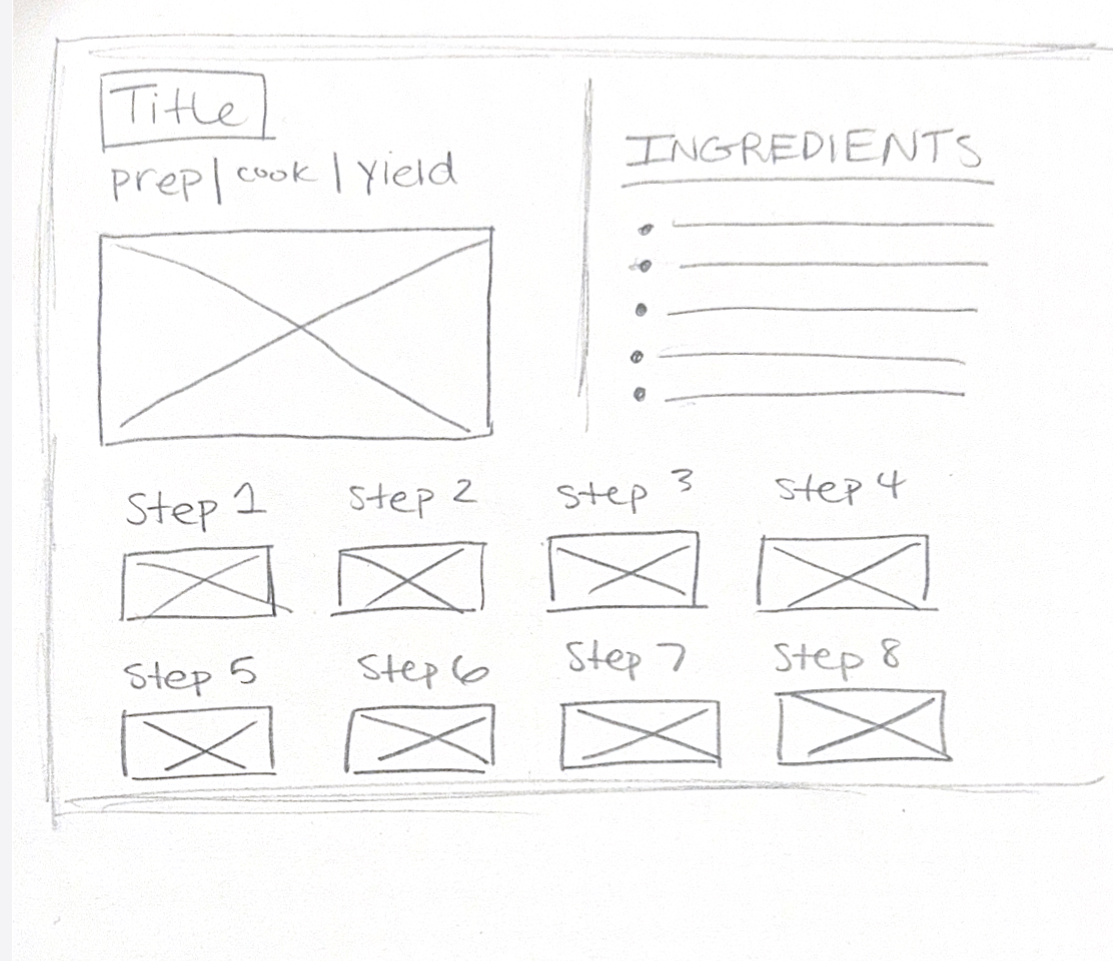 Title
prep | cook | Yield
INGREDIENTS
Step 1
Step 2
Step 3
Step 4
Step 5
Step 6
Step 7
Step 8